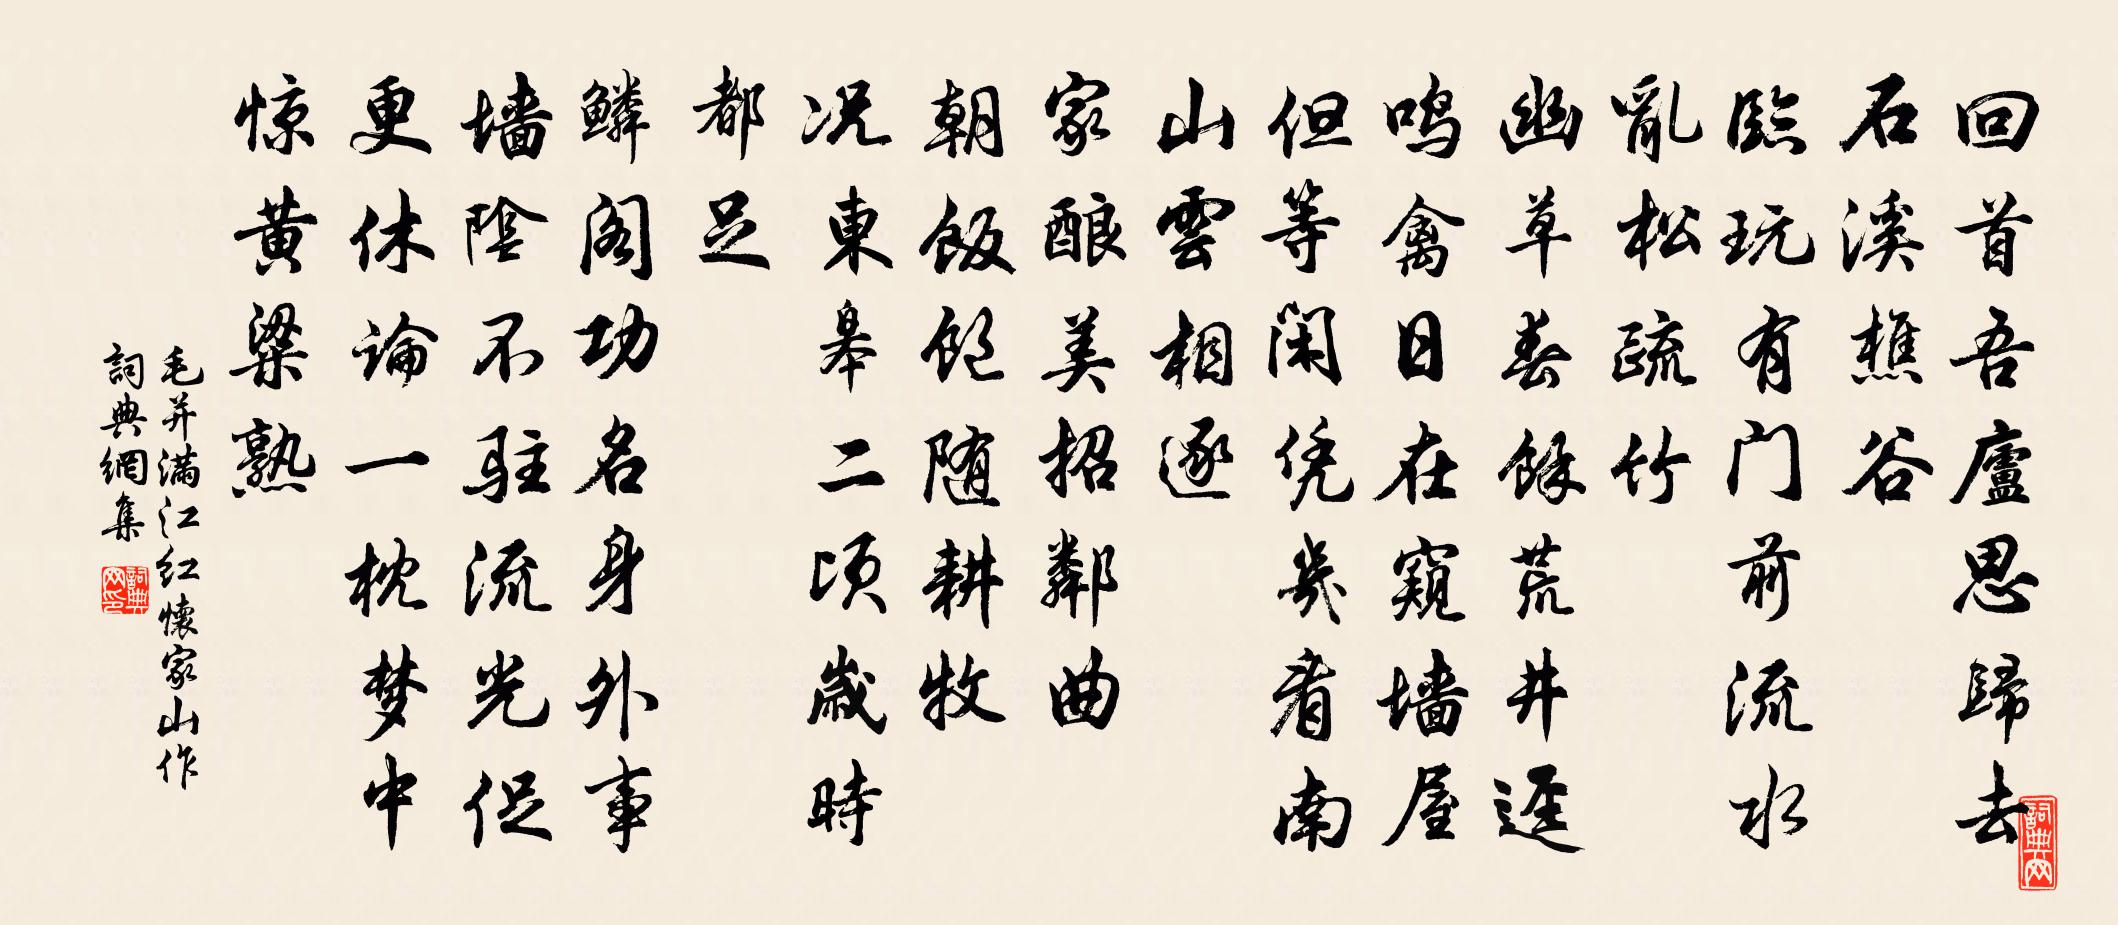 回首吾廬思歸去
石溪樵谷
臨玩有门前流水
亂松疏竹
幽草春餘荒井逕
鸣禽日在窺墙屋
但等闲凭幾看南
山雲相逐
家酿美招鄰曲
朝飯飽随耕牧
况東皋二顷歲時
都足
鱗阁功名身外事
墙陰不驻流光促
更休論一枕梦中
惊黄粱熟
毛并满江红懷家山作
詞典網集
詞典网印
詞典网